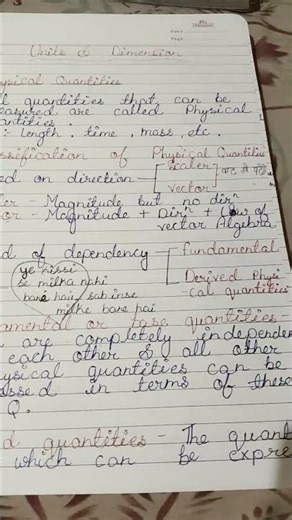 Date
Page
Units & Dimension
ysical Quantities
l quantities that can be
easured are called Physical
antities
:- length, time, mass, etc.
ssification of Physical Quantities
ed on direction - Scaler
vector
er - Magnitude but no dirⁿ
or - Magnitude + Dirⁿ + Law of
vector Algebra
d of dependency - fundamental
Derived Physi
-cal quantities
ye kissi
se milka nahi
bane hai, sab inse
milke bane hai
amental or base quantities -
are completely independe
each other & all other
ysical quantities can be
essed in terms of these
Q.
d quantities - The quant
which can be expre